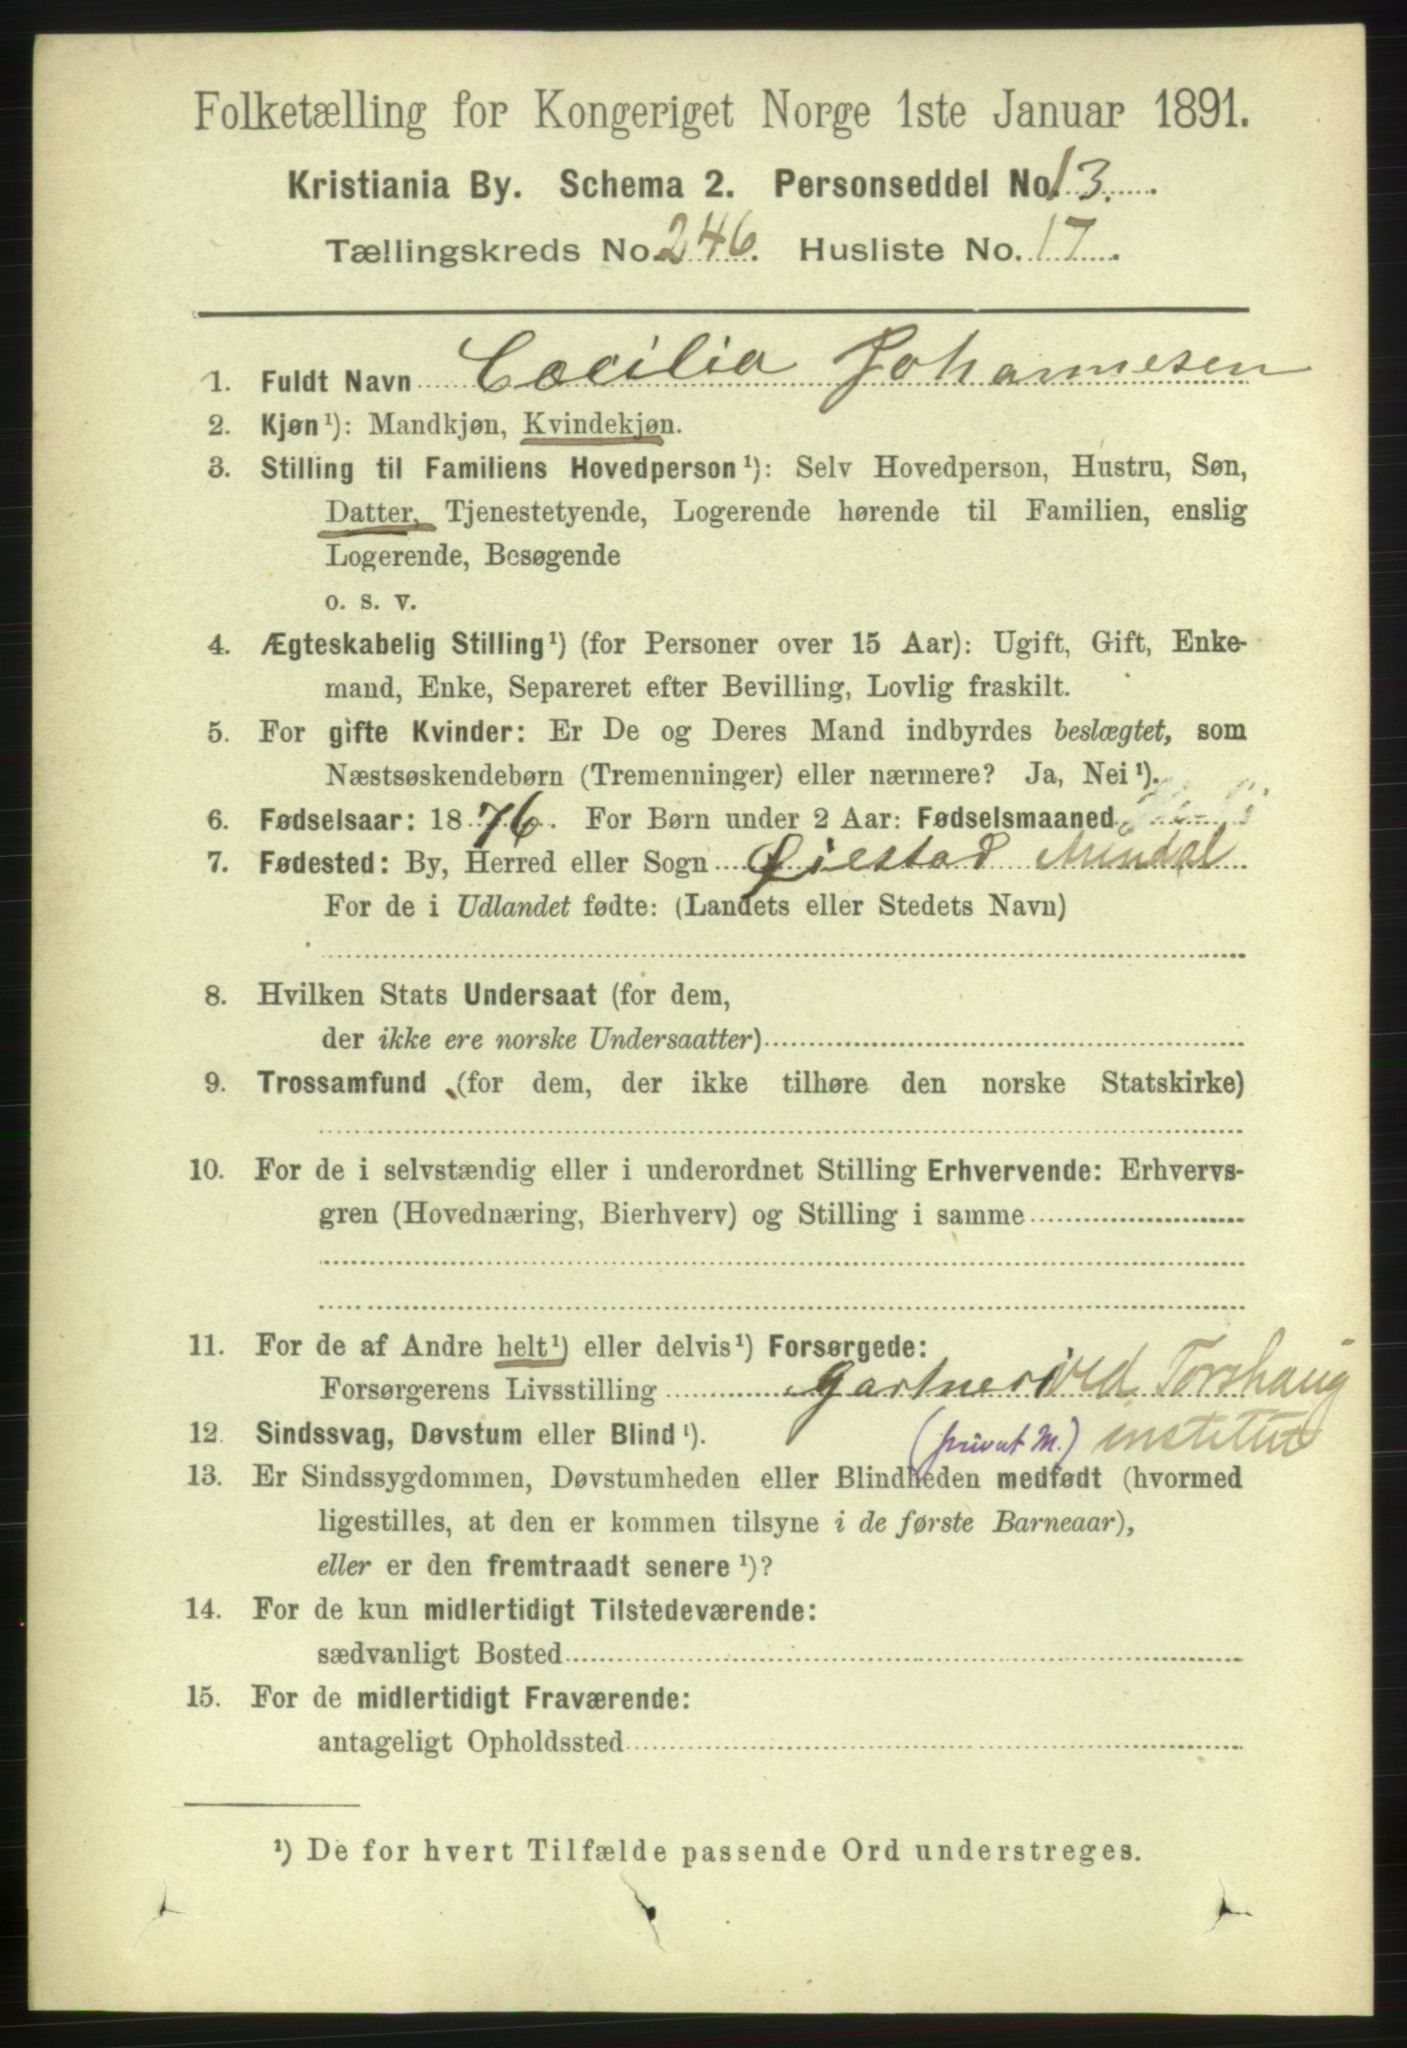 Folketælling for Kongeriget Norge 1ste Januar 1891.
Kristiania By. Schema 2. Personseddel No. 13.
Tællingskreds No. 246. Husliste No. 17.
1. Fuldt Navn Cecilia Johannesen
2. Kjøn¹): Mandkjøn, Kvindekjøn.
3. Stilling til Familiens Hovedperson¹): Selv Hovedperson, Hustru, Søn,
Datter, Tjenestetyende, Logerende hørende til Familien, enslig
Logerende, Besøgende
o. s. v.
4. Ægteskabelig Stilling¹) (for Personer over 15 Aar): Ugift, Gift, Enke-
mand, Enke, Separeret efter Bevilling, Lovlig fraskilt.
5. For gifte Kvinder: Er De og Deres Mand indbyrdes beslægtet, som
Næstsøskendebørn (Tremenninger) eller nærmere? Ja, Nei¹).
6. Fødselsaar: 1876. For Børn under 2 Aar: Fødselsmaaned
7. Fødested: By, Herred eller Sogn Øiestad Arendal
For de i Udlandet fødte: (Landets eller Stedets Navn)
8. Hvilken Stats Undersaat (for dem,
der ikke ere norske Undersaatter)
9. Trossamfund (for dem, der ikke tilhøre den norske Statskirke)
10. For de i selvstændig eller i underordnet Stilling Erhvervende: Erhvervs-
gren (Hovednæring, Bierhverv) og Stilling i samme
11. For de af Andre helt¹) eller delvis¹) Forsørgede:
Forsørgerens Livsstilling Gartner ved Torshaug
institut
(privat M.)
12. Sindssvag, Døvstum eller Blind¹).
13. Er Sindssygdommen, Døvstumheden eller Blindheden medfødt (hvormed
ligestilles, at den er kommen tilsyne i de første Barneaar),
eller er den fremtraadt senere¹)?
14. For de kun midlertidigt Tilstedeværende:
sædvanligt Bosted
15. For de midlertidigt Fraværende:
antageligt Opholdssted
¹) De for hvert Tilfælde passende Ord understreges.